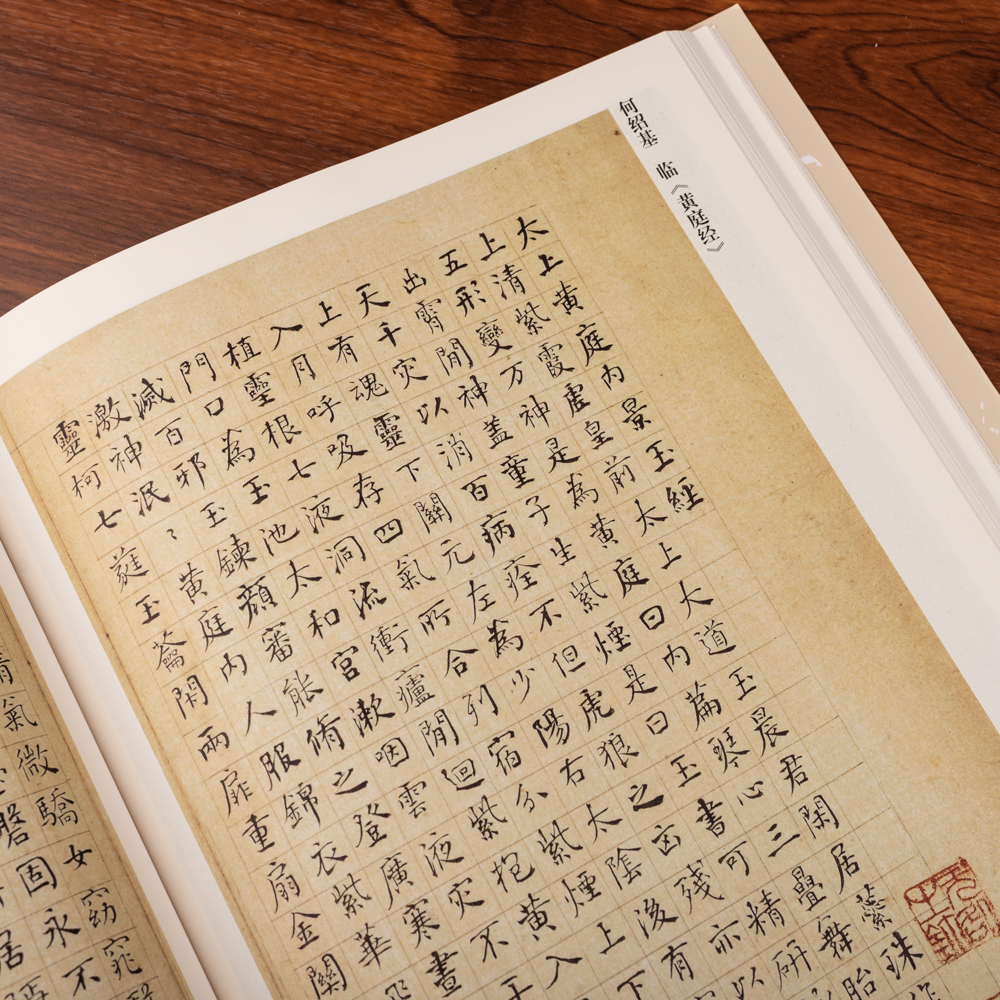 何绍基 临《黄庭经》
太上黄庭内景玉經
上清紫霞虚皇前太上大道玉晨君閑居蘂珠作
五形變万神是為黄庭曰内篇琴心三疊舞胎
出霄閒神蓋童子生紫煙是曰玉書可精研
天千灾以消百病痊不但虎狼之凶残亦以
上有魂靈下關元左為少陽右太陰後有
入月呼吸存四氣所合列宿分紫煙上下
植靈根七液洞流衝廬閒廻紫抱黄入
門口為玉池太和官漱咽雲液灾不干
滅百邪玉鍊顔審能脩之登廣寒晝
激神泯〻黄庭内人服錦衣紫華飛
靈柯七蕤玉籥閑兩扉重扇金關
清氣微驕女窈窕翳
盤固永不
居